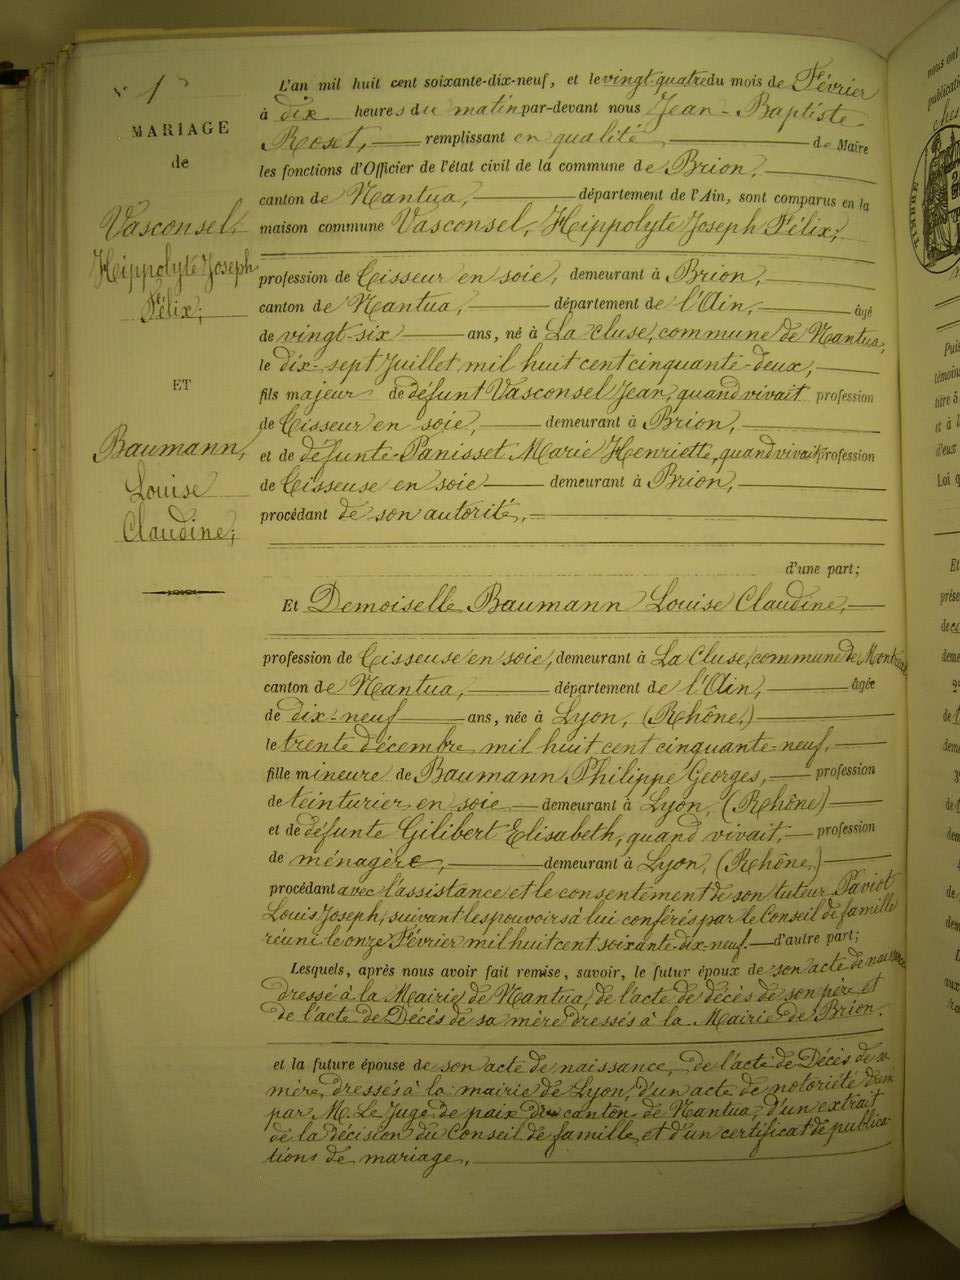 N° 1
MARIAGE
de
Vasconsel,
Hippolyte Joseph
Félix;
ET
Baumann,
Louise
Claudine;
L'an mil huit cent soixante-dix-neuf, et le vingt-quatre du mois de Février
à dix heures du matin par-devant nous Jean-Baptiste
Roset, remplissant en qualité de Maire
les fonctions d'Officier de l'état civil de la commune de Brion,
canton de Nantua, département de l'Ain, sont comparus en la
maison commune Vasconsel, Hippolyte Joseph Félix;
profession de Tisseur en soie, demeurant à Brion,
canton de Nantua, département de l'Ain, âgé
de vingt-six ans, né à La Cluse, commune de Nantua,
le dix-sept Juillet mil huit cent cinquante-deux,
fils majeur de défunt Vasconsel Jean, quand vivait profession
de Tisseur en soie, demeurant à Brion,
et de défunte Panisset Marie Henriette, quand vivait profession
de Tisseuse en soie demeurant à Brion,
procédant de son autorité,
d'une part;
Et Demoiselle Baumann Louise Claudine,
profession de Tisseuse en soie, demeurant à La Cluse, commune de
canton de Nantua, département de l'Ain, âgée
de dix-neuf ans, née à Lyon, (Rhône)
le trente décembre mil huit cent cinquante-neuf,
fille mineure de Baumann Philippe Georges, profession
de teinturier en soie demeurant à Lyon, (Rhône)
et de défunte Gilibert Elisabeth, quand vivait, profession
de ménagère, demeurant à Lyon, (Rhône,)
procédant avec l'assistance et le consentement de son tuteur Paviot
Louis Joseph, suivant les pouvoirs à lui conférés par le Conseil de famille
réuni le onze Février mil huit cent soixante-dix-neuf. d'autre part;
Lesquels, après nous avoir fait remise, savoir, le futur époux de son acte de naissance
dressé à la Mairie de Nantua, de l'acte de décès de son père et
de l'acte de Décès de sa mère dressés à la Mairie de Brion.
et la future épouse de son acte de naissance, de l'acte de Décès de sa
mère, dressés à la mairie de Lyon, d'un acte de notoriété
par M. Le Juge de paix du canton de Nantua, d'un extrait
de la décision du Conseil de famille, et d'un certificat de publica-
tions de mariage,
nous ont
publicati
TIMBRE
Puis
témoins
et à l
d'eux
Loi q
Et
prése